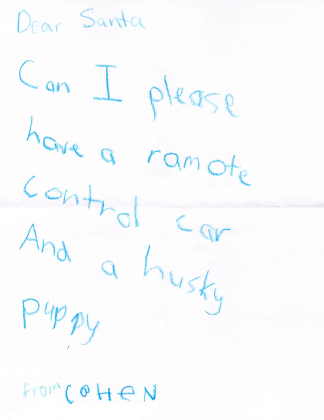 Dear Santa
Can I please
have a ramote
control car
And a husky
puppy
from COHEN